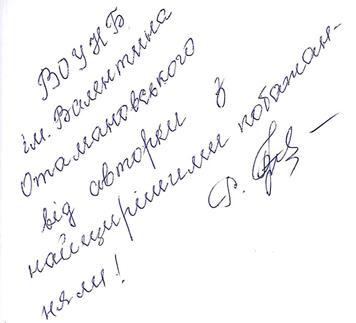 ВОУНБ
ім. Валентина
Отамановського
від авторки з
найщирішими побажан-
нями!